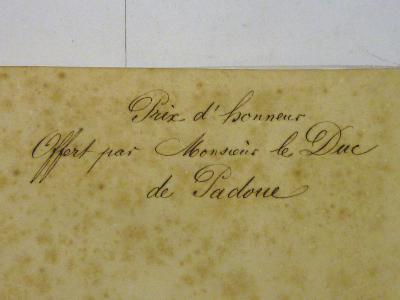 Prix d'honneur
Offert par Monsieur le Duc
de Padoue